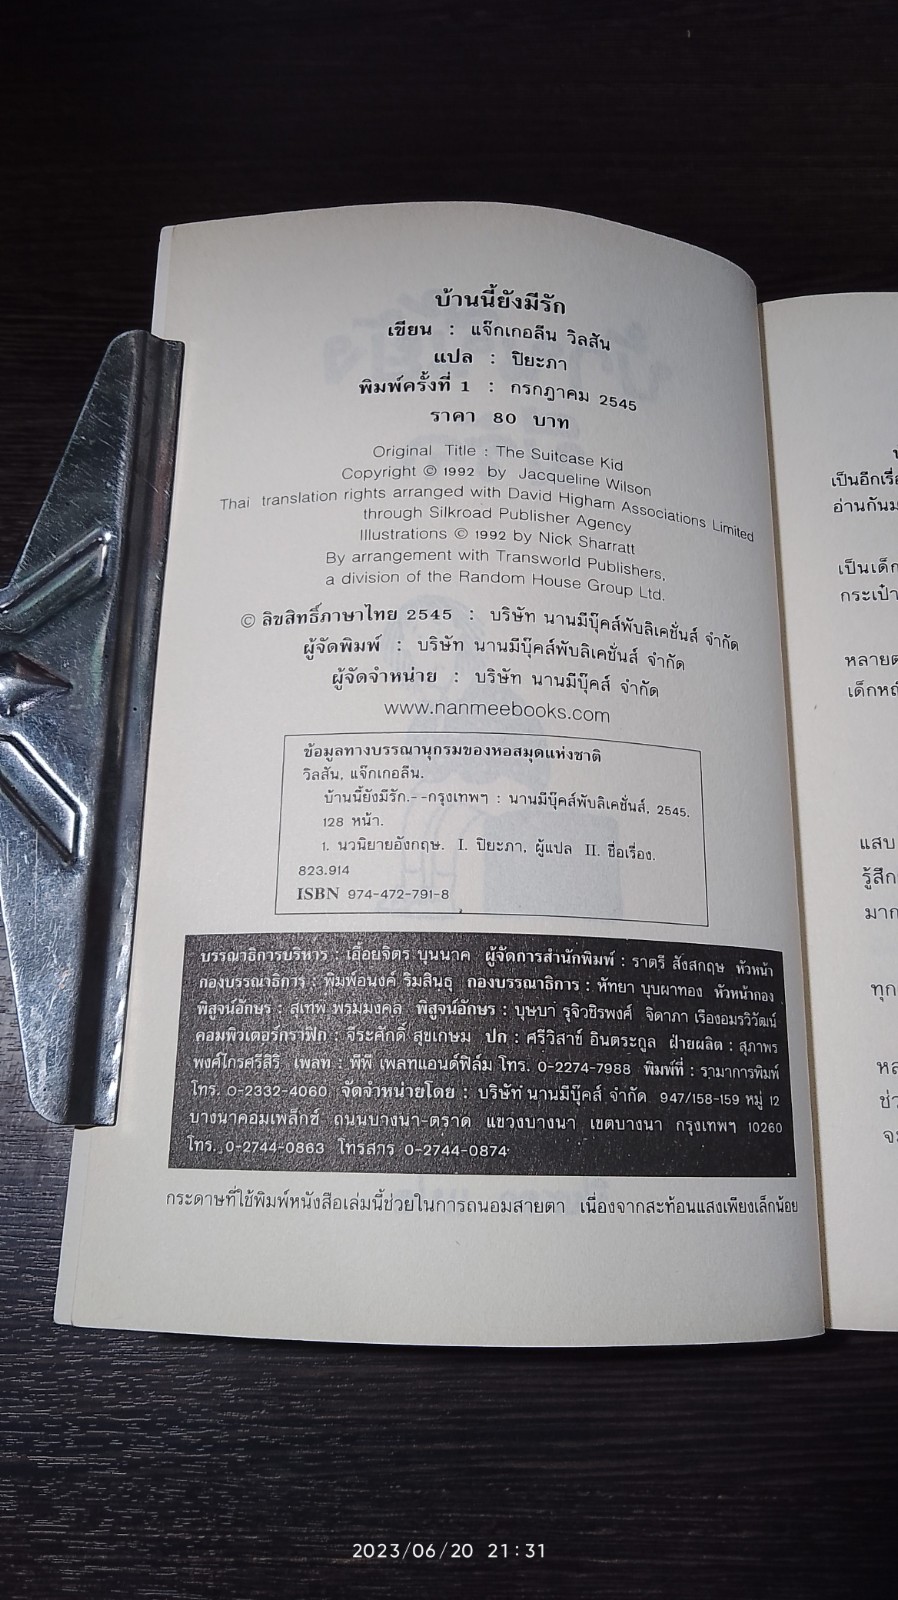 บ้านนี้ยังมีรัก
เขียน : แจ๊กเกอลีน วิลสัน
แปล : ปิยะภา
พิมพ์ครั้งที่ 1 : กรกฎาคม 2545
ราคา 80 บาท
Original Title : The Suitcase Kid
Copyright © 1992 by Jacqueline Wilson
Thai translation rights arranged with David Higham Associations Limited
through Silkroad Publisher Agency
Illustrations © 1992 by Nick Sharratt
By arrangement with Transworld Publishers,
a division of the Random House Group Ltd.
© ลิขสิทธิ์ภาษาไทย 2545 : บริษัท นานมีบุ๊คส์พับลิเคชั่นส์ จำกัด
ผู้จัดพิมพ์ : บริษัท นานมีบุ๊คส์พับลิเคชั่นส์ จำกัด
ผู้จัดจำหน่าย : บริษัท นานมีบุ๊คส์ จำกัด
www.nanmeebooks.com
ข้อมูลทางบรรณานุกรมของหอสมุดแห่งชาติ
วิลสัน, แจ๊กเกอลีน.
บ้านนี้ยังมีรัก.--กรุงเทพฯ : นานมีบุ๊คส์พับลิเคชั่นส์, 2545.
128 หน้า.
1. นวนิยายอังกฤษ. I. ปิยะภา, ผู้แปล II. ชื่อเรื่อง.
823.914
ISBN 974-472-791-8
บรรณาธิการบริหาร : เอื้อยจิตร บุนนาค ผู้จัดการสำนักพิมพ์ : ราตรี สังสกฤษ หัวหน้า
กองบรรณาธิการ : พิมพ์อนงค์ ริมสินธุ กองบรรณาธิการ : หัทยา บุบผาทอง หัวหน้ากอง
พิสูจน์อักษร : สุเทพ พรมมงคล พิสูจน์อักษร : บุษบา รุจิวชิรพงศ์ จิดาภา เรืองอมรวิวัฒน์
คอมพิวเตอร์กราฟิก : จีระศักดิ์ สุขเกษม ปก : ศรีวิสาข์ อินตระกูล ฝ่ายผลิต : สุภาพร
พงศ์ไกรศรีสิริ เพลท : พีพี เพลทแอนด์ฟิล์ม โทร. 0-2274-7988 พิมพ์ที่ : รามาการพิมพ์
โทร. 0-2332-4060 จัดจำหน่ายโดย : บริษัท นานมีบุ๊คส์ จำกัด 947/158-159 หมู่ 12
บางนาคอมเพล็กซ์ ถนนบางนา-ตราด แขวงบางนา เขตบางนา กรุงเทพฯ 10260
โทร. 0-2744-0863 โทรสาร 0-2744-0874
กระดาษที่ใช้พิมพ์หนังสือเล่มนี้ช่วยในการถนอมสายตา เนื่องจากสะท้อนแสงเพียงเล็กน้อย
เป็นอีกเรื่
อ่านกันม
เป็นเด็ก
กระเป๋า
หลายต
เด็กหญิ
แสบ
รู้สึก
มาก
ทุก
หล
ช่ว
จะ
2023/06/20 21:31